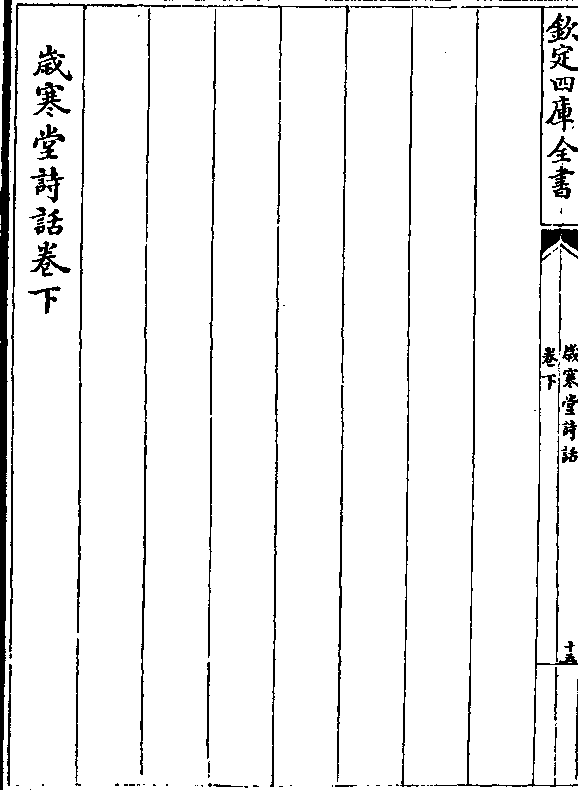 欽定四庫全書
歲寒堂詩話
卷下
十五
歲寒堂詩話卷下